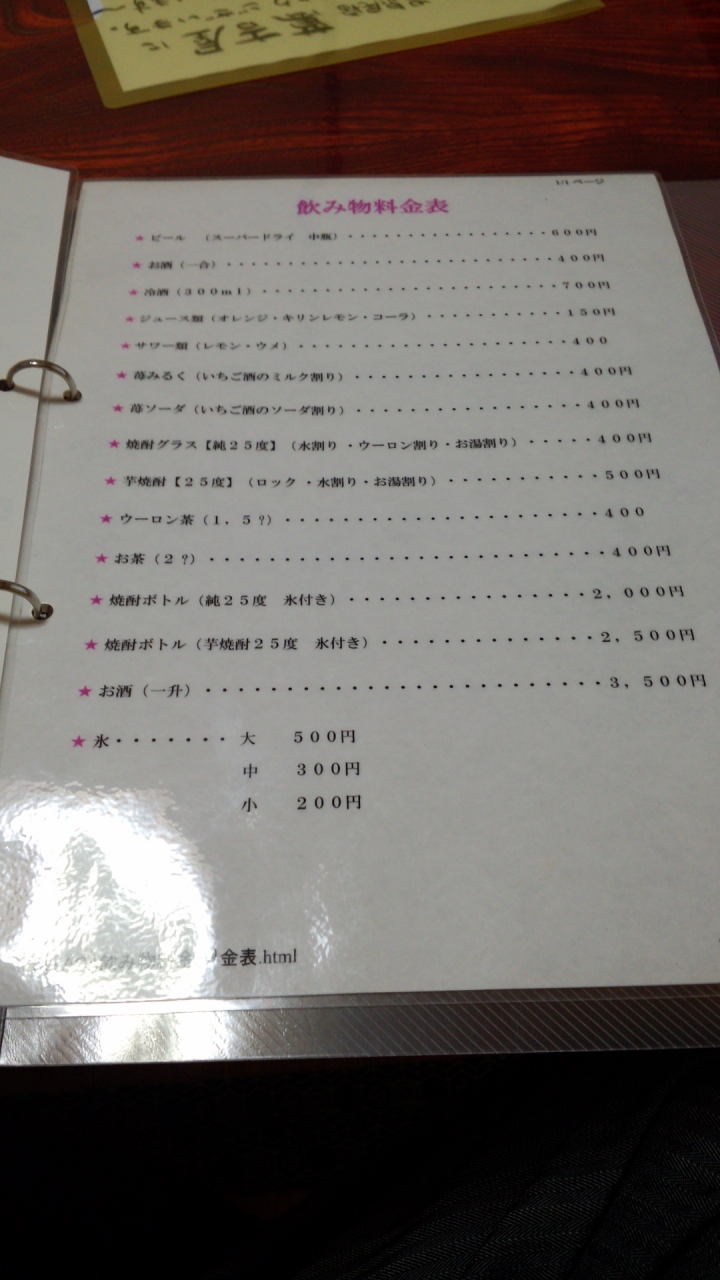 蔵吉屋に
1/1 ページ
飲み物料金表
★ ビール　（スーパードライ　中瓶）・・・・・・・・・・・・・・・・・・６００円
★ お酒（一合）・・・・・・・・・・・・・・・・・・・・・・・・・・・・４００円
★ 冷酒（３００ｍｌ）・・・・・・・・・・・・・・・・・・・・・・・・・７００円
★ ジュース類（オレンジ・キリンレモン・コーラ）・・・・・・・・・・・１５０円
★ サワー類（レモン・ウメ）・・・・・・・・・・・・・・・・・・・・・４００
★ 苺みるく（いちご酒のミルク割り）・・・・・・・・・・・・・・・・・４００円
★ 苺ソーダ（いちご酒のソーダ割り）・・・・・・・・・・・・・・・・・４００円
★ 焼酎グラス【純２５度】（水割り ・ウーロン割り・お湯割り）・・・・・４００円
★ 芋焼酎【２５度】（ロック ・水割り・お湯割り）・・・・・・・・・・・５００円
★ ウーロン茶（１，５?）・・・・・・・・・・・・・・・・・・・・・・４００
★ お茶（２?）・・・・・・・・・・・・・・・・・・・・・・・・・・・４００円
★ 焼酎ボトル（純２５度　氷付き）・・・・・・・・・・・・・・・・・２，０００円
★ 焼酎ボトル（芋焼酎２５度　氷付き）・・・・・・・・・・・・・・・２，５００円
★ お酒（一升）・・・・・・・・・・・・・・・・・・・・・・・・・・３，５００円
★ 氷・・・・・・・ 大　　５００円
中　　３００円
小　　２００円
金表.html